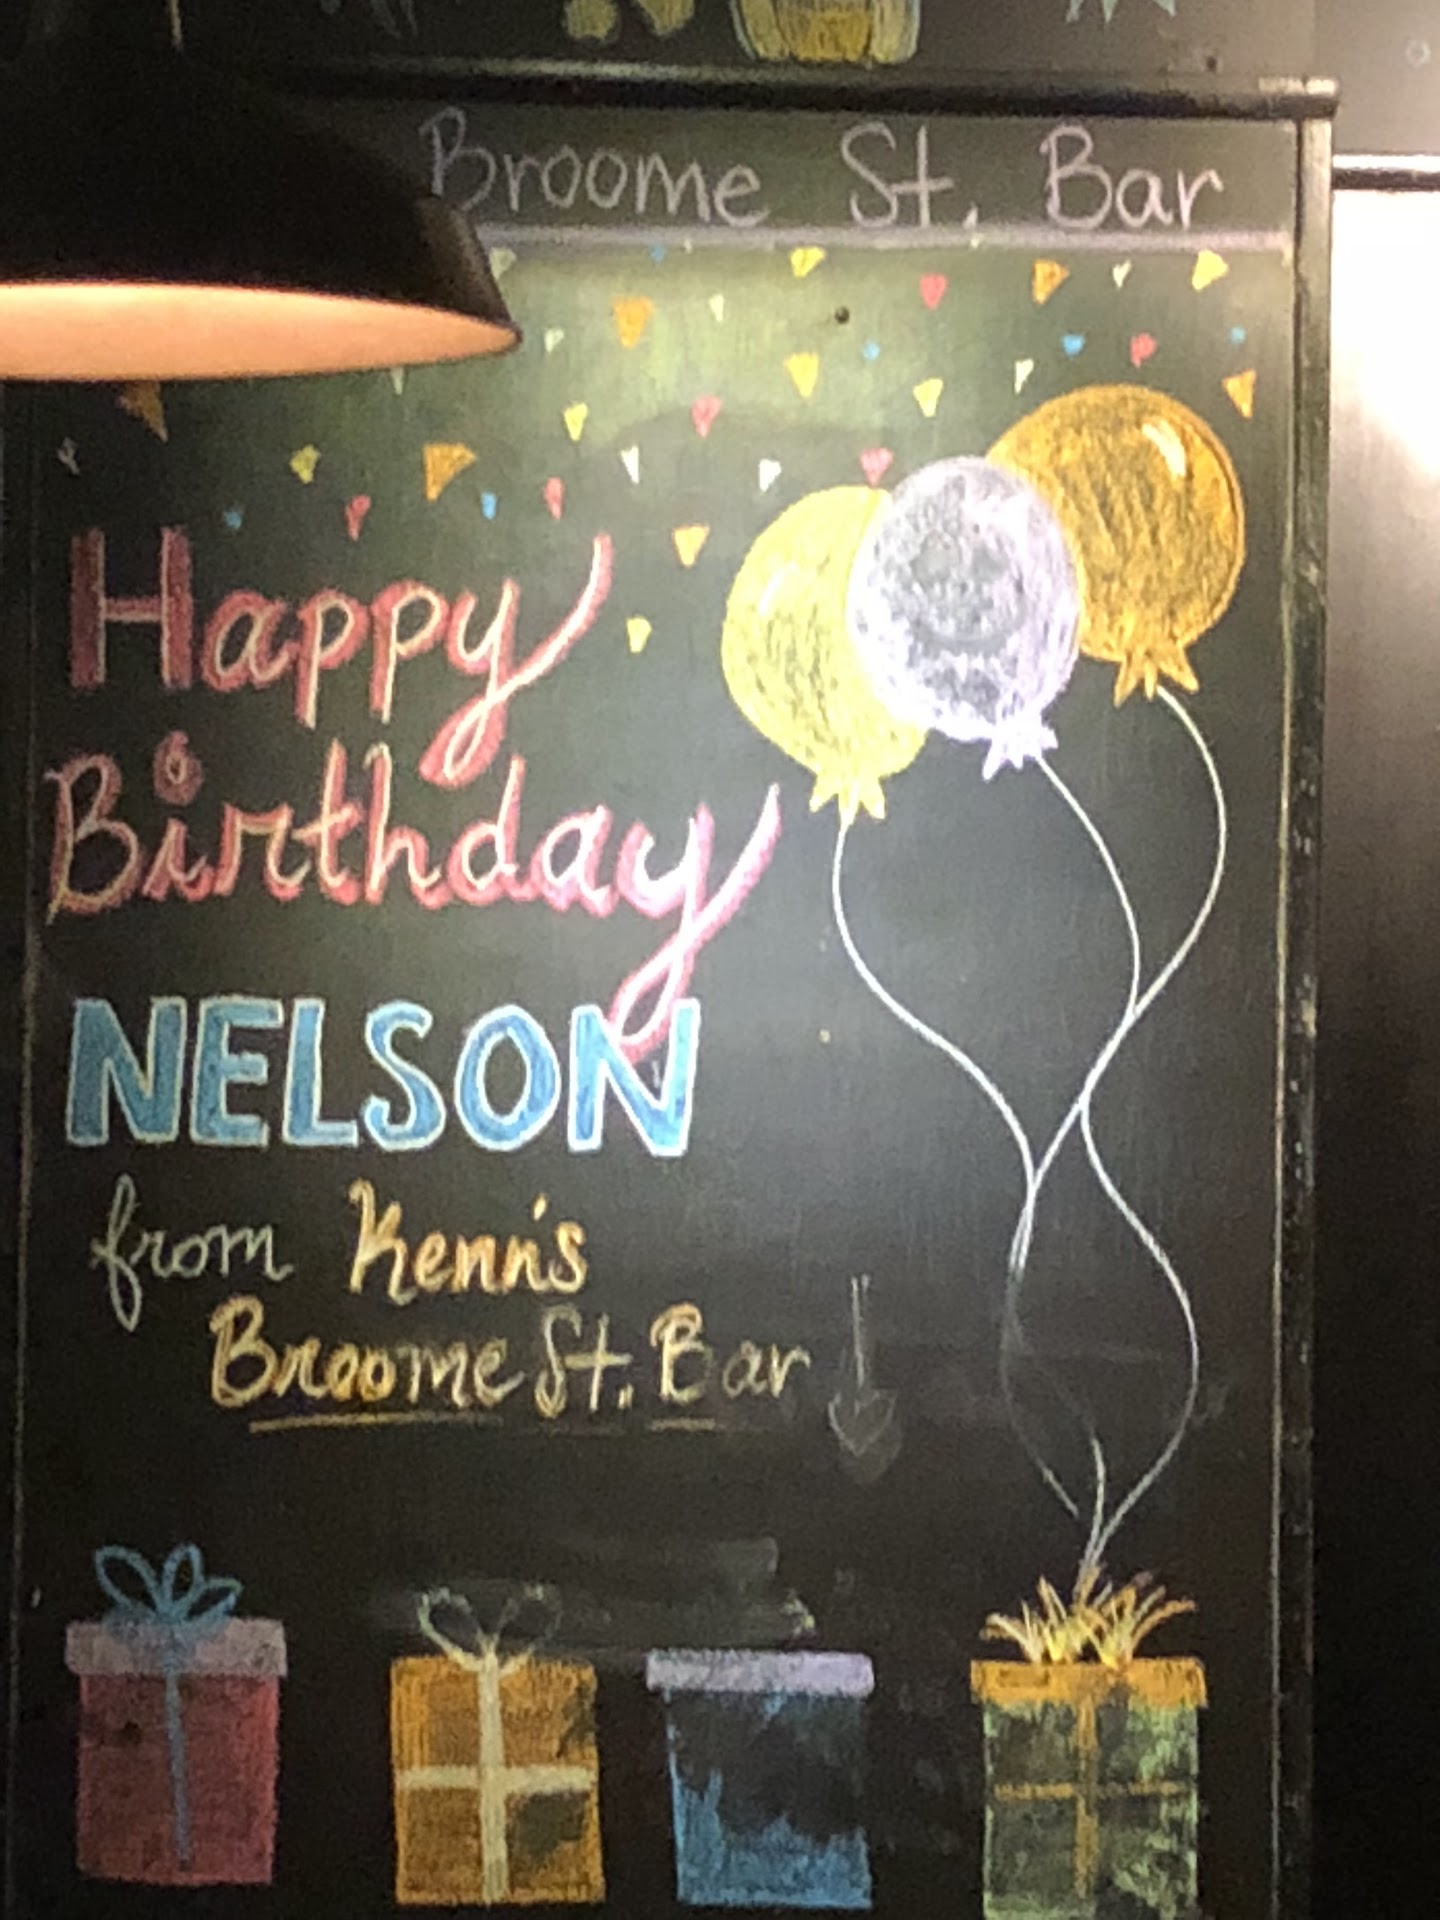 Broome St. Bar
Happy
Birthday
NELSON
from Kenn's
Broome St. Bar